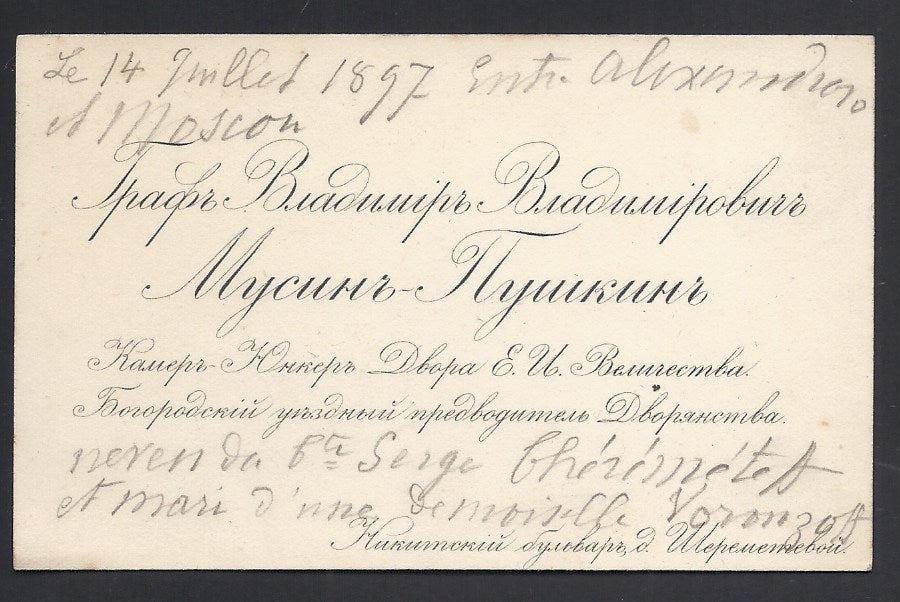 Le 14 Juillet 1897 Entre Alexandrovo
et Moscou
Графъ Владиміръ Владиміровичъ
Мусинъ-Пушкинъ
Камеръ-Юнкеръ Двора Е. И. Величества.
Богородскій уѣздный предводитель Дворянства.
neveu du Serge Chérémeteff
et mari d'une Demoiselle Voronzoff
Никитскій бульваръ, д. Шереметевой.